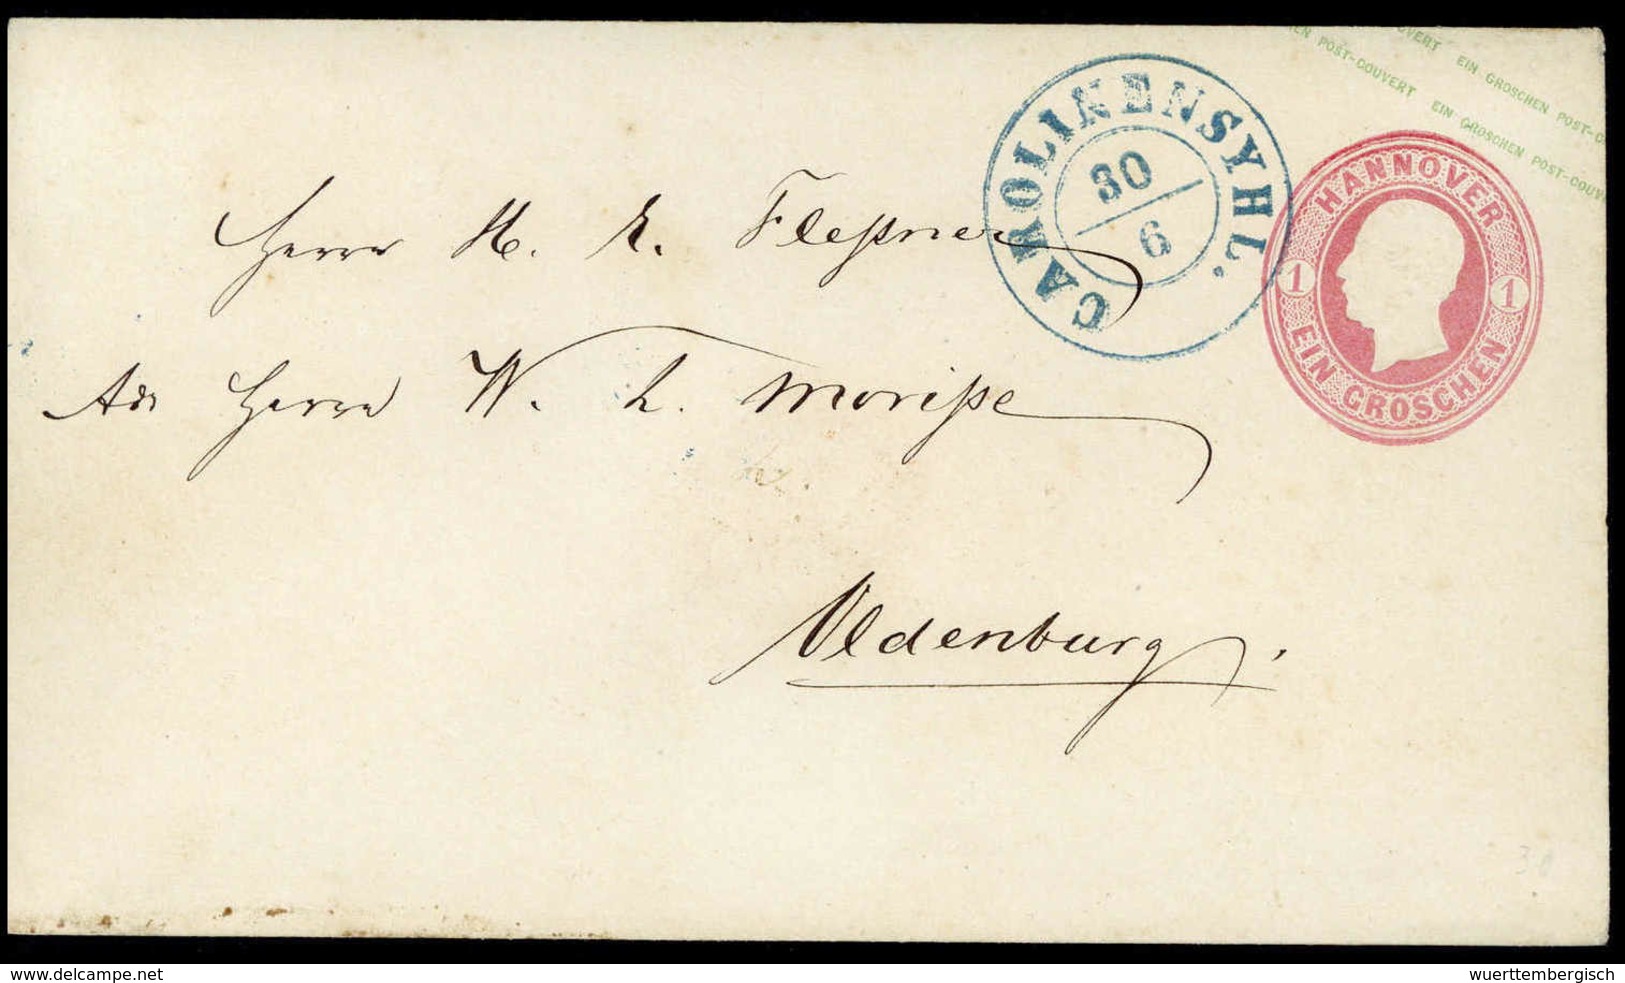 VERT EIN GROSCHEN POST-COU
EN POST-COUVERT EIN GROSCHEN POST-COUV
CAROLINENSYHL.
30
6
HANNOVER
1 1
EIN GROSCHEN
Herrn H. E. Fleßner
Adr Herrn W. L. Morisse
Oldenburg.
30
www.delcampe.net
wuerttembergisch